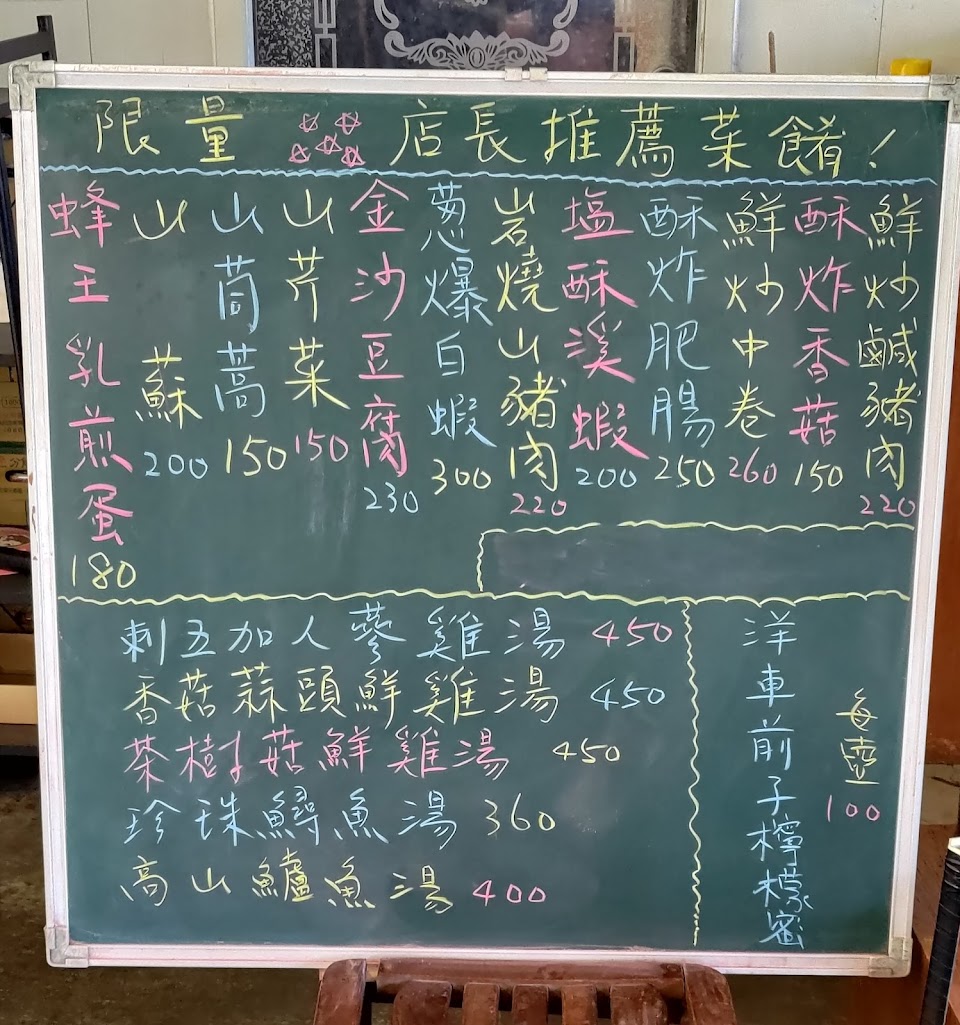 限量 店長推薦菜餚！
鮮炒鹹豬肉 220
酥炸香菇 150
鮮炒中卷 260
酥炸肥腸 250
塩酥溪蝦 200
岩燒山豬肉 220
蔥爆白蝦 300
金沙豆腐 230
山芹菜 150
山茼蒿 150
山蘇 200
蜂王乳煎蛋 180
刺五加人蔘雞湯 450
香菇蒜頭鮮雞湯 450
茶樹菇鮮雞湯 450
珍珠鱘魚湯 360
高山鱸魚湯 400
洋車前子檸檬蜜
每壺 100